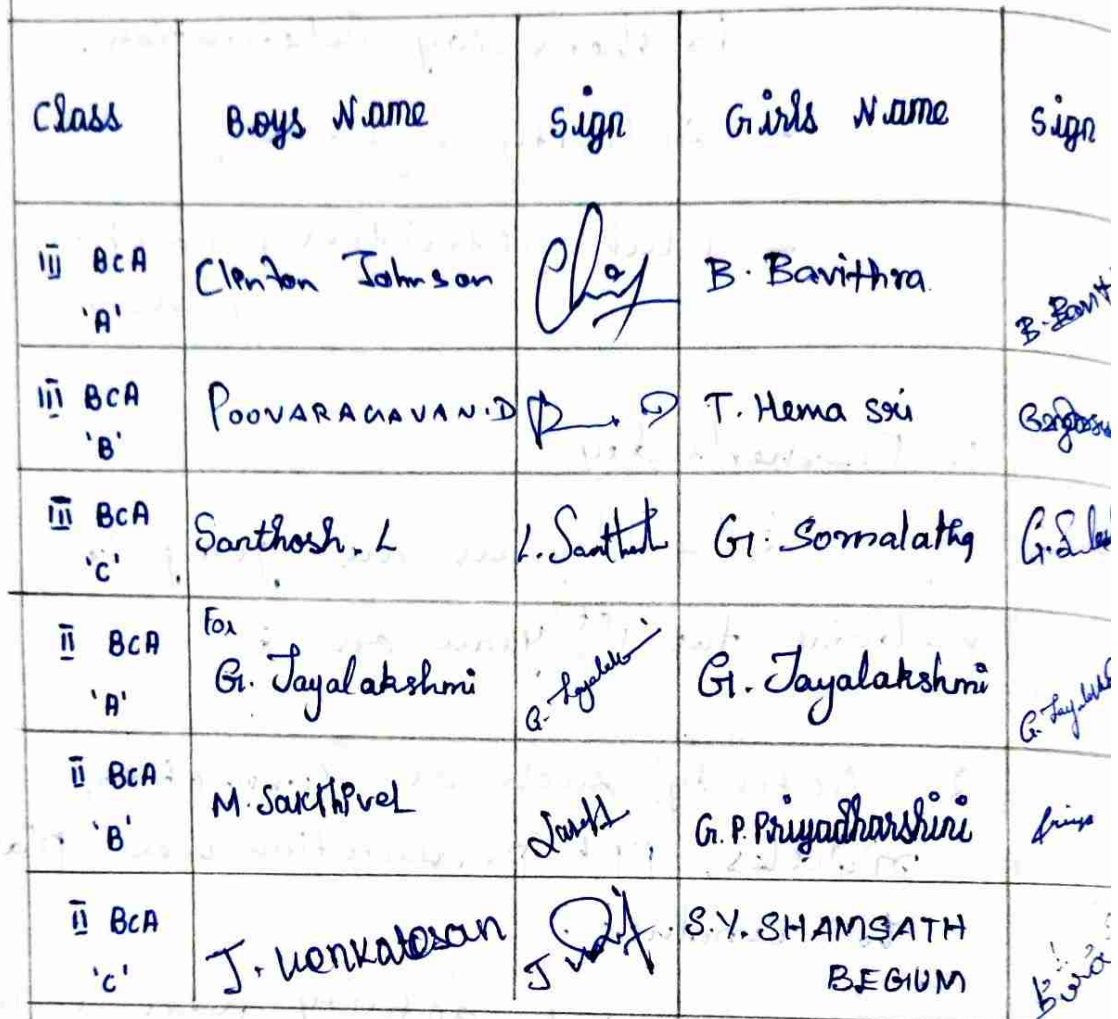 Class Boys Name Sign Girls Name Sign
III BCA Clinton Johnson B. Bavithra
'A'
III BCA POOVARAGAVAN.D T. Hema sri
'B'
III BCA Santhosh. L L. Santhosh G. Somalatha
'C'
For
II BCA G. Jayalakshmi G. Jayalakshmi
'A'
II BCA M. Sakthivel G.P. Priyadharshini
'B'
II BCA J. Venkatesan S.Y. SHAMSATH
'C' BEGUM